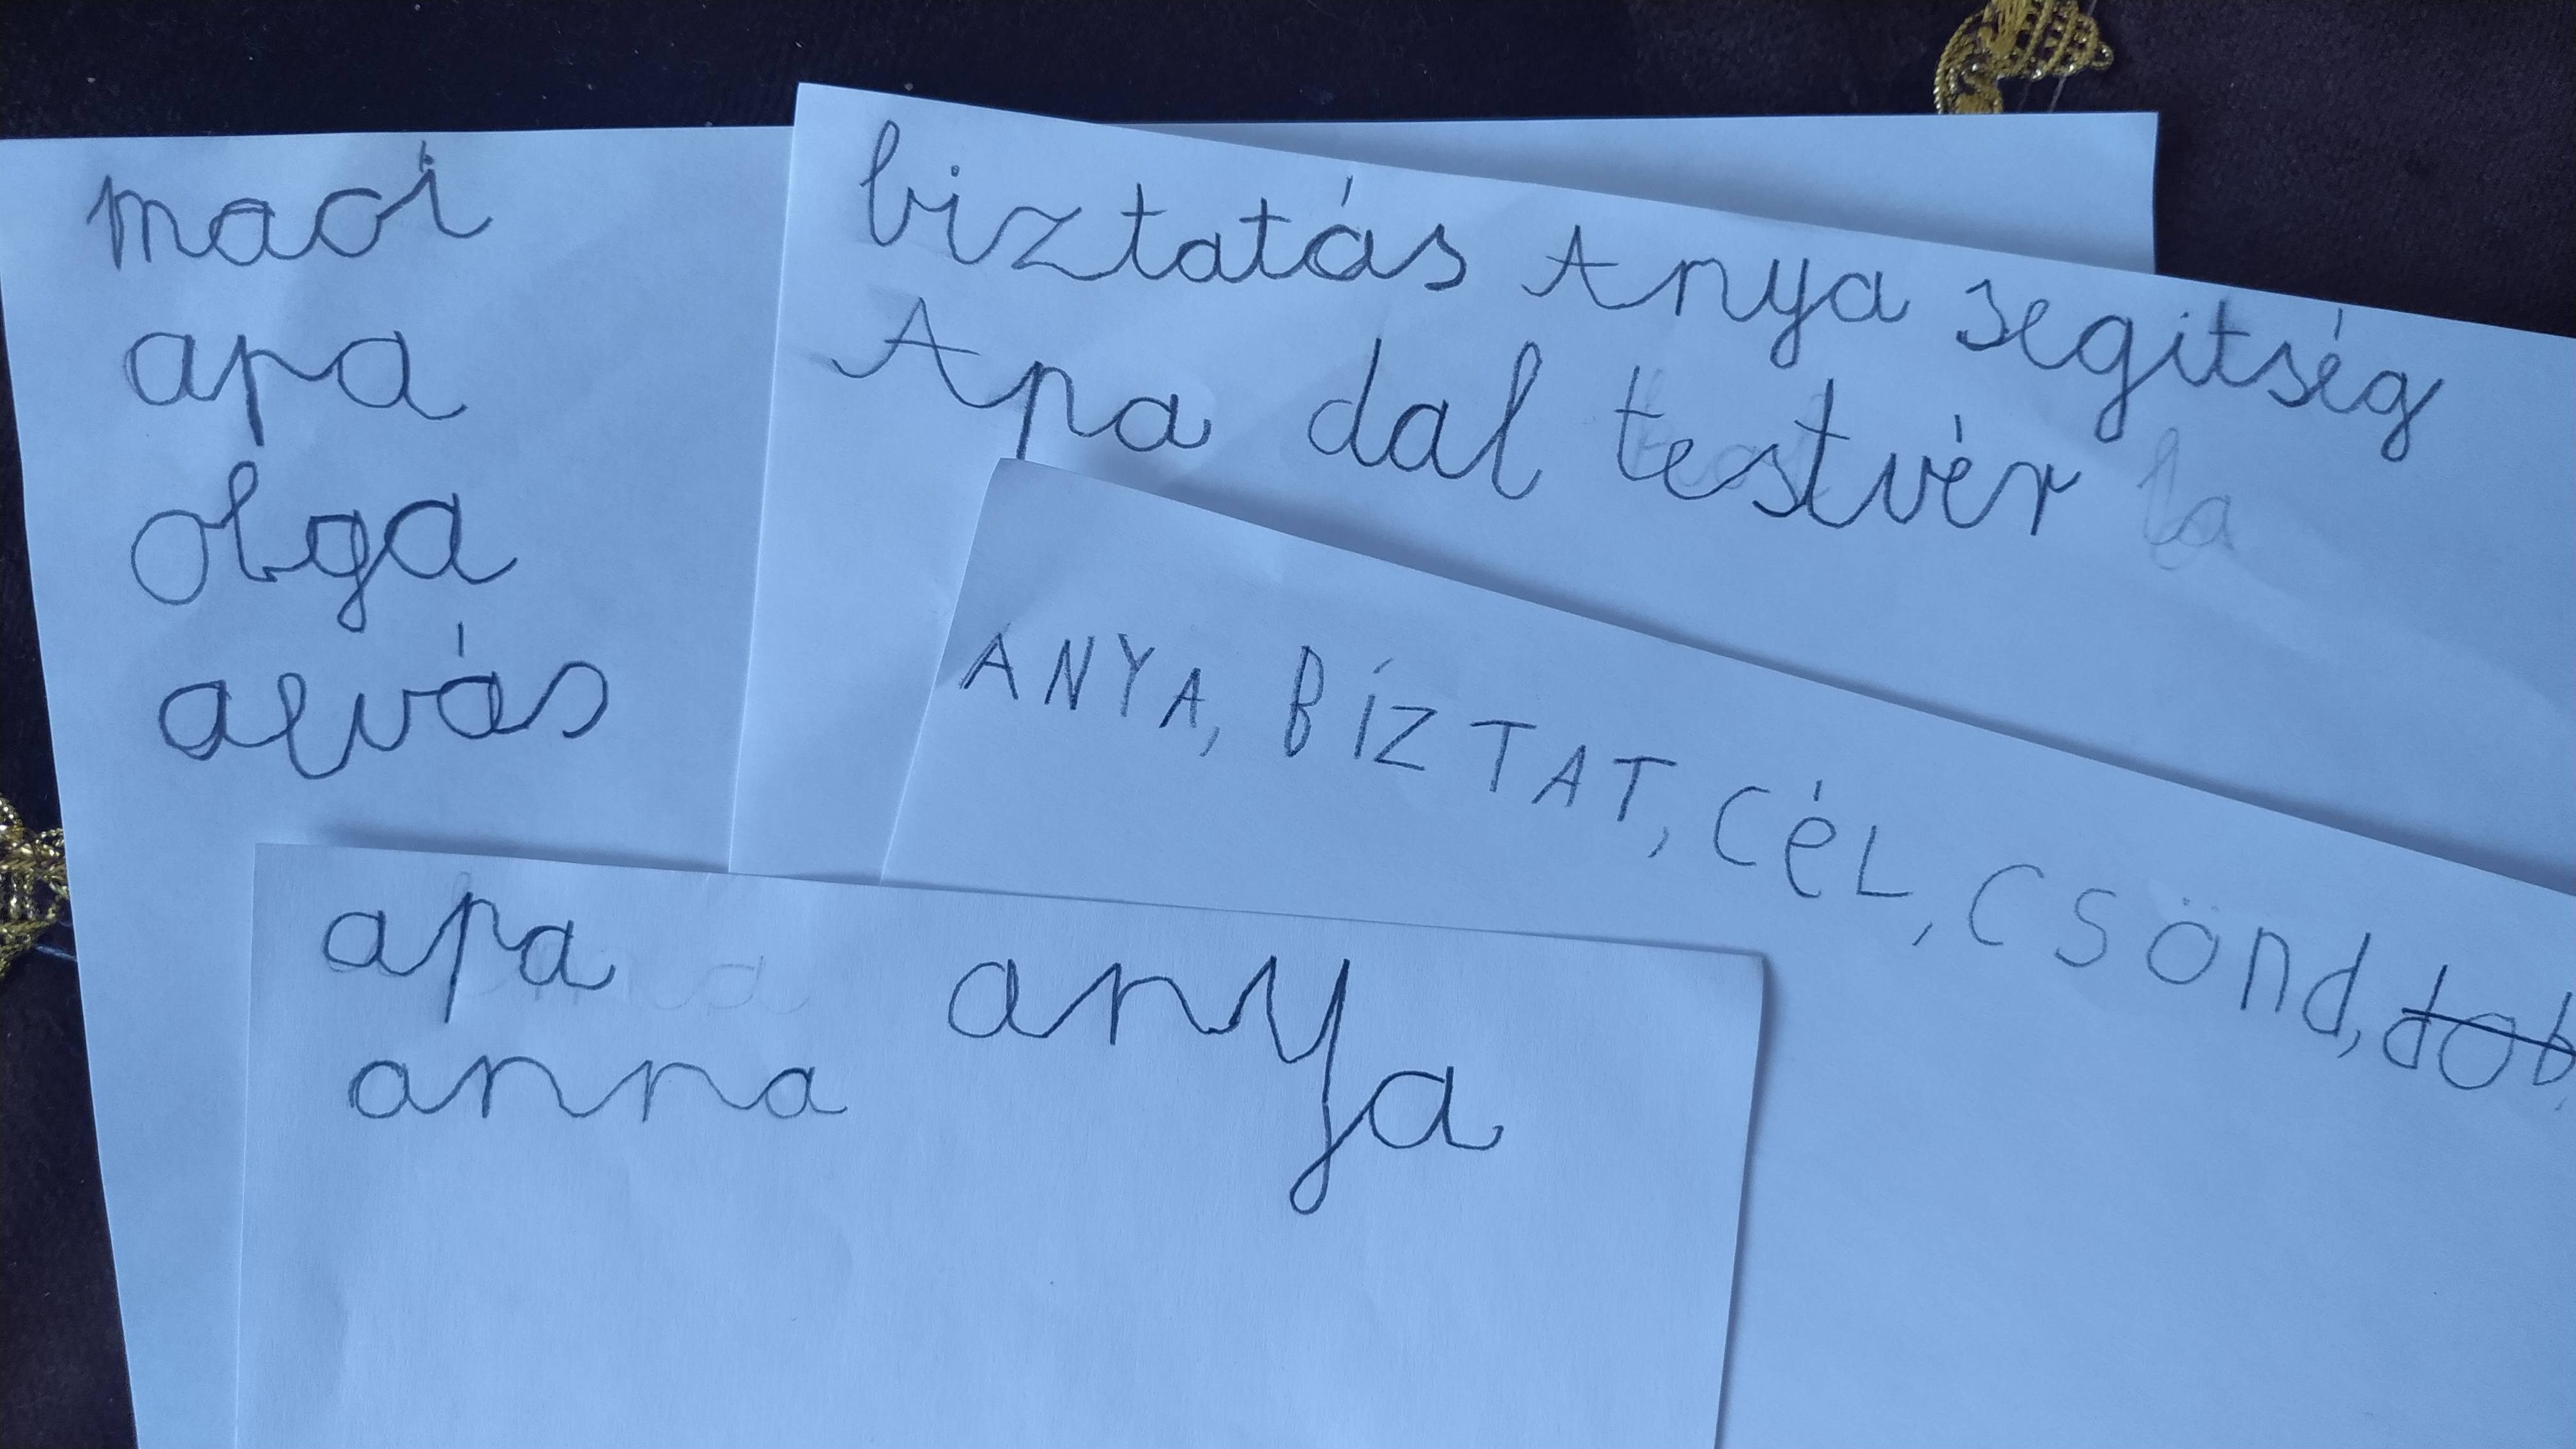 maci
apa
olga
alvás
biztatás Anya segitség
Apa dal testvér la
ANYA, BÍZTAT, CéL, CSÖnd, dob
apa anya
anna